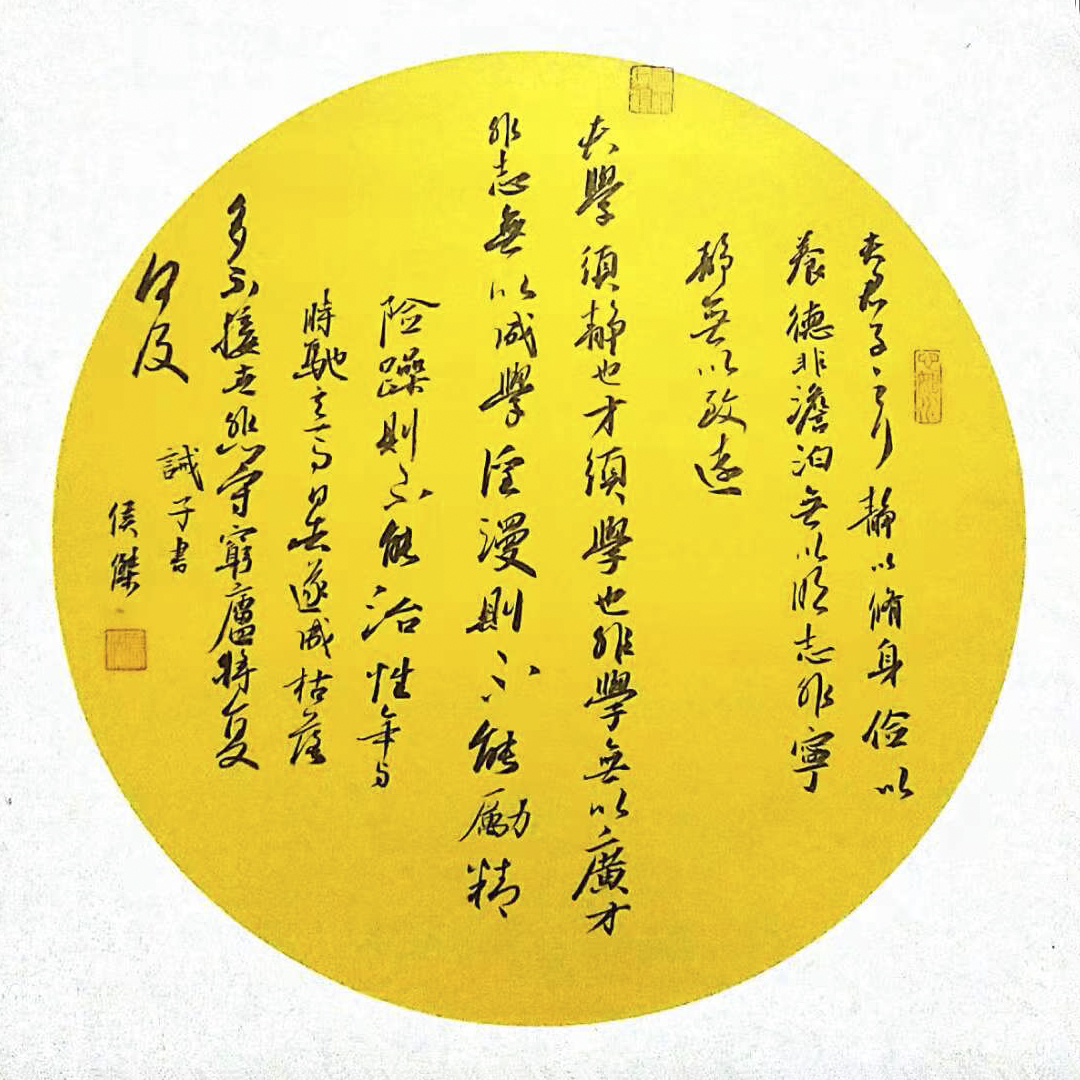 夫君子之行靜以脩身儉以
養德非澹泊無以明志非寧
靜無以致遠
夫學須靜也才須學也非學無以廣才
非志無以成學淫漫則不能勵精
险躁則不能治性年与
時馳意与日去遂成枯落
多不接世悲守窮廬將复
何及
誡子書
侯傑